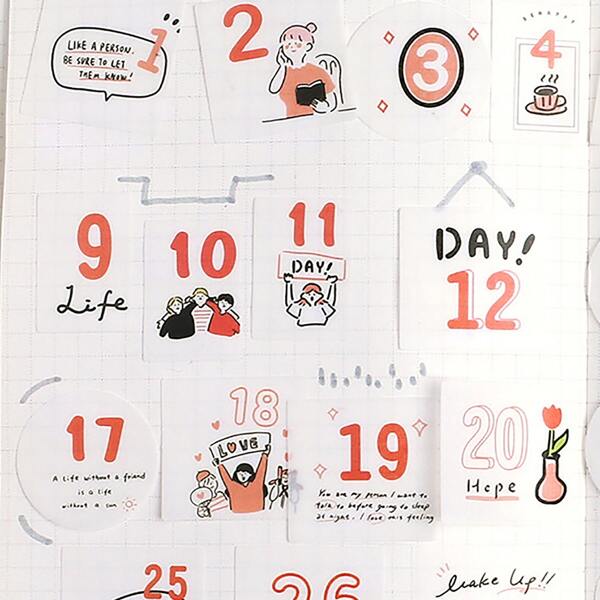 LIKE A PERSON.
BE SURE TO LET
THEM KNOW!
1
2
3
4
9
Life
10
11
DAY!
DAY!
12
17
A life without a friend
is a life
without a sun
18
LOVE
19
You are my person I want to
talk to before going to sleep
at night. I love this feeling
20
Hope
25
26
Wake Up!!